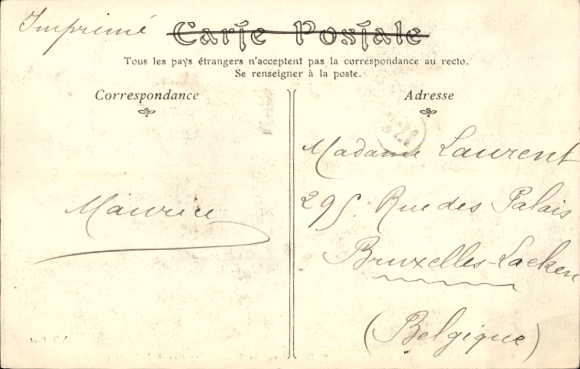 Imprimé
Carte Postale
Tous les pays étrangers n'acceptent pas la correspondance au recto.
Se renseigner à la poste.
Correspondance
Adresse
Maurice
Madame Laurent
295. Rue des Palais
Bruxelles-Laeken
(Belgique)